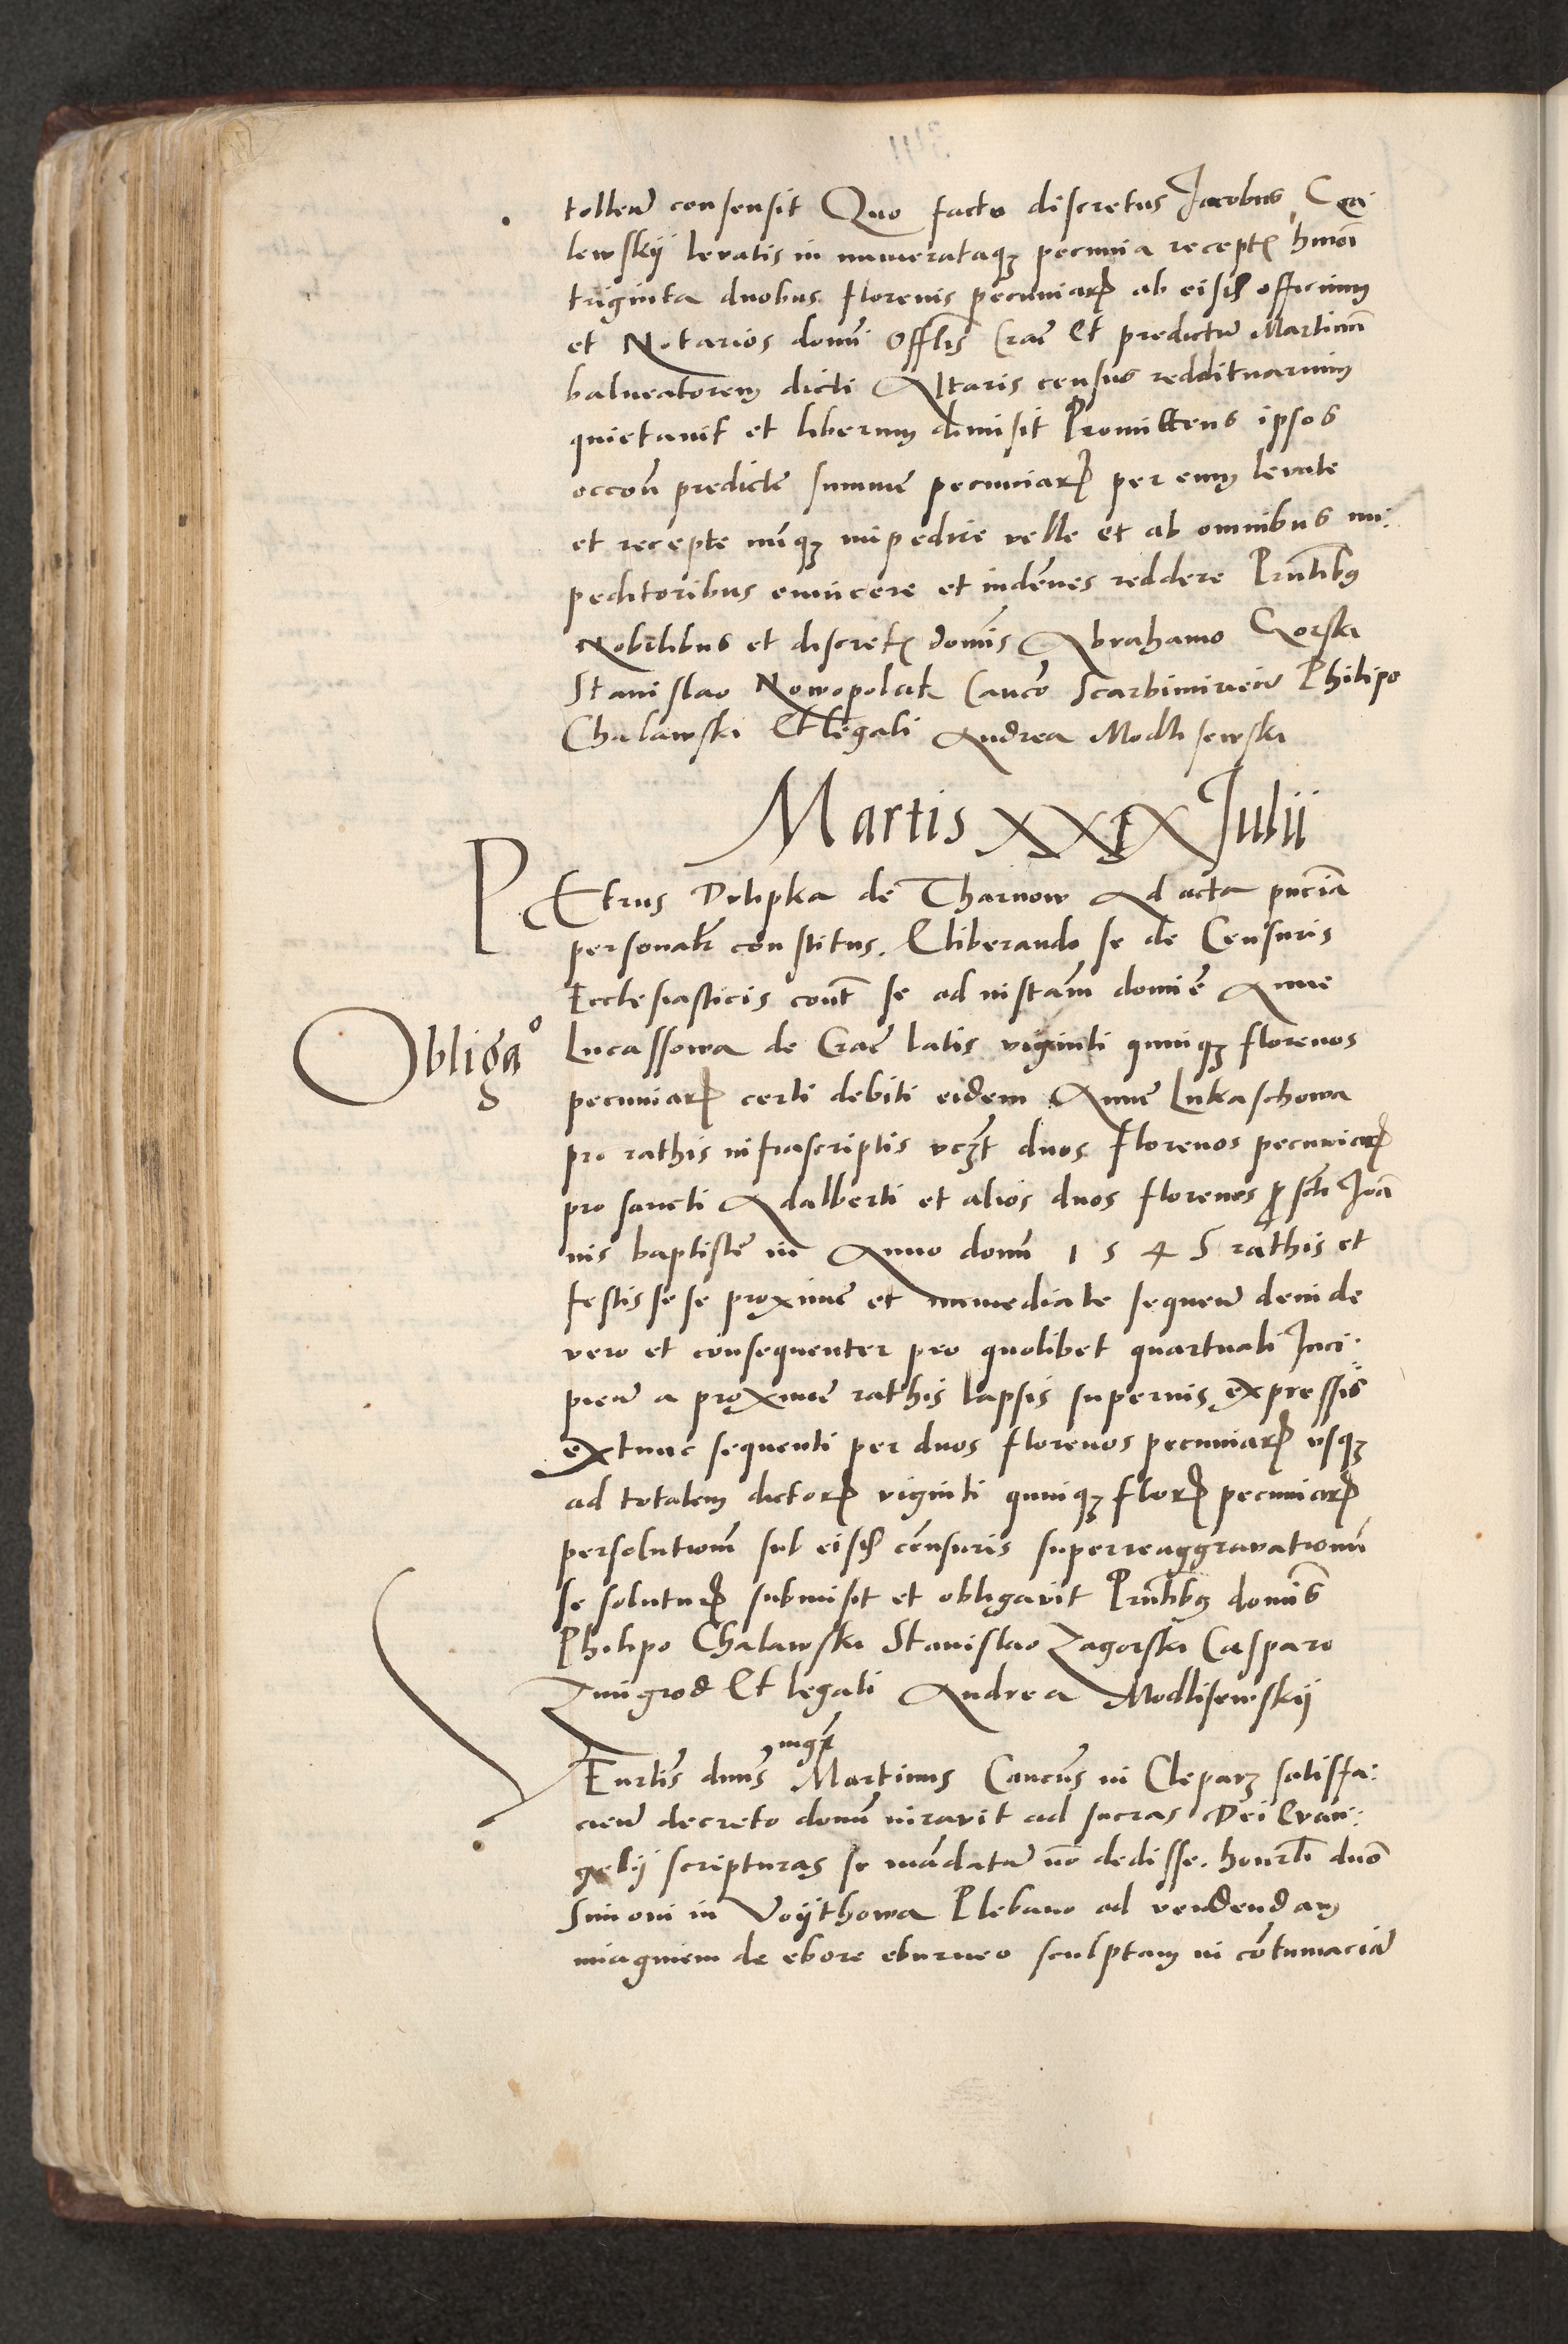 tollend consensit Quo facto discretus Jacobus Cza
lewskij levatis in numerataq pecunia recept hmoi
triginta duobus florenis pecuniar ab eisd officium
et Notarios domi Offlis Crac Et predictu Martinu
balneatorem dicti Altaris census reddituarium
quietavit et liberum dimisit Promittens ipsos
occon predicte summe pecuniar per eum levate
et recepte nunq impedire velle et ab omnibus im:
peditoribus evincere et indenes reddere Pntibus
Nobilibus et discret domis Abrahamo Gorski
Stanislao Nowopolcik Canco Scarbimirien Philipo
Chalawski Et legali Andrea Modlisewski
Martis XXIX Julii
PEtrus Dulipka de Tharnow Ad acta pncia
personalr constitus. Cliberando se de Censuris
Ecclesiasticis cont se ad instam domie Anne
Obligao
Lucassowa de Crac latis viginti quinq florenos
pecuniar certi debiti eidem Anne Lukaschowa
pro rathis infrascriptis vczt duos florenos pecuniar
pro sancti Adalberti et alios duos florenos p scti Joa
nis baptiste in Anno domi 1 5 4 5 rathis et
festis sese proxime et immediate sequen deinde
vero et consequenter pro quolibet quartuali Inci:
pien a proxime rathis lapsis superius expressis
extunc sequenti per duos florenos pecuniar usq
ad totalem dictor viginti quinq flor pecuniar
persolutionem sub eisd censuris superreaggravationum
se solutur submisit et obligavit Pntibus domis
Philipo Chalawski Stanislao Zagorski Casparo
Zmigrod Et legali Andrea Modlisewskij
mgr
Eurlis dnus Martinus Cancus in Cleparz satisfa:
cien decreto domi iuravit ad sacras Dei Evan:
gelij scripturas se mandatu no dedisse. honorli dno
Simoni in Voijthowa Plebano ad vendendam
imaginem de ebore eburneo sculptam in contumacia